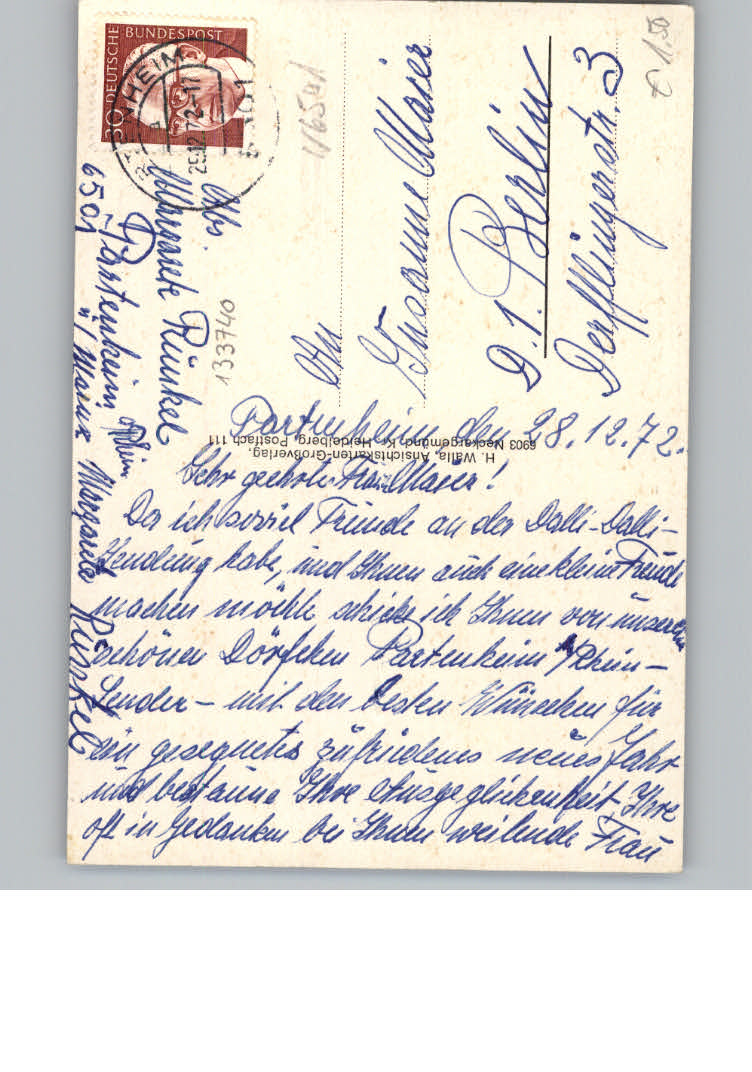 30 DEUTSCHE BUNDESPOST
29.12.72-17
Abs.
Margarete Runkel
Partenheim
6501
ü/Mainz
V6541
133740
€ 1.50
An
Susanne Maier
D. 1. Berlin
Derfflingerstr. 3
H. Walla, Ansichtskarten-Großverlag,
6903 Neckargemünd, Kr. Heidelberg, Postfach 111
Partenheim, den 28.12.72.
Sehr geehrte Frau Maier!
Da ich soviel Freude an der Dalli-Dalli-
Sendung habe, und Ihnen auch eine kleine Freude
machen möchte schicke ich Ihnen von unserem
schönen Dörfchen Partenheim /Rhein-
Sender – mit den besten Wünschen für
ein gesegnetes zufriedenes neues Jahr
und bestaune Ihre Ausgeglichenheit Ihre
oft in Gedanken bei Ihnen weilende Frau
Margarete Runkel